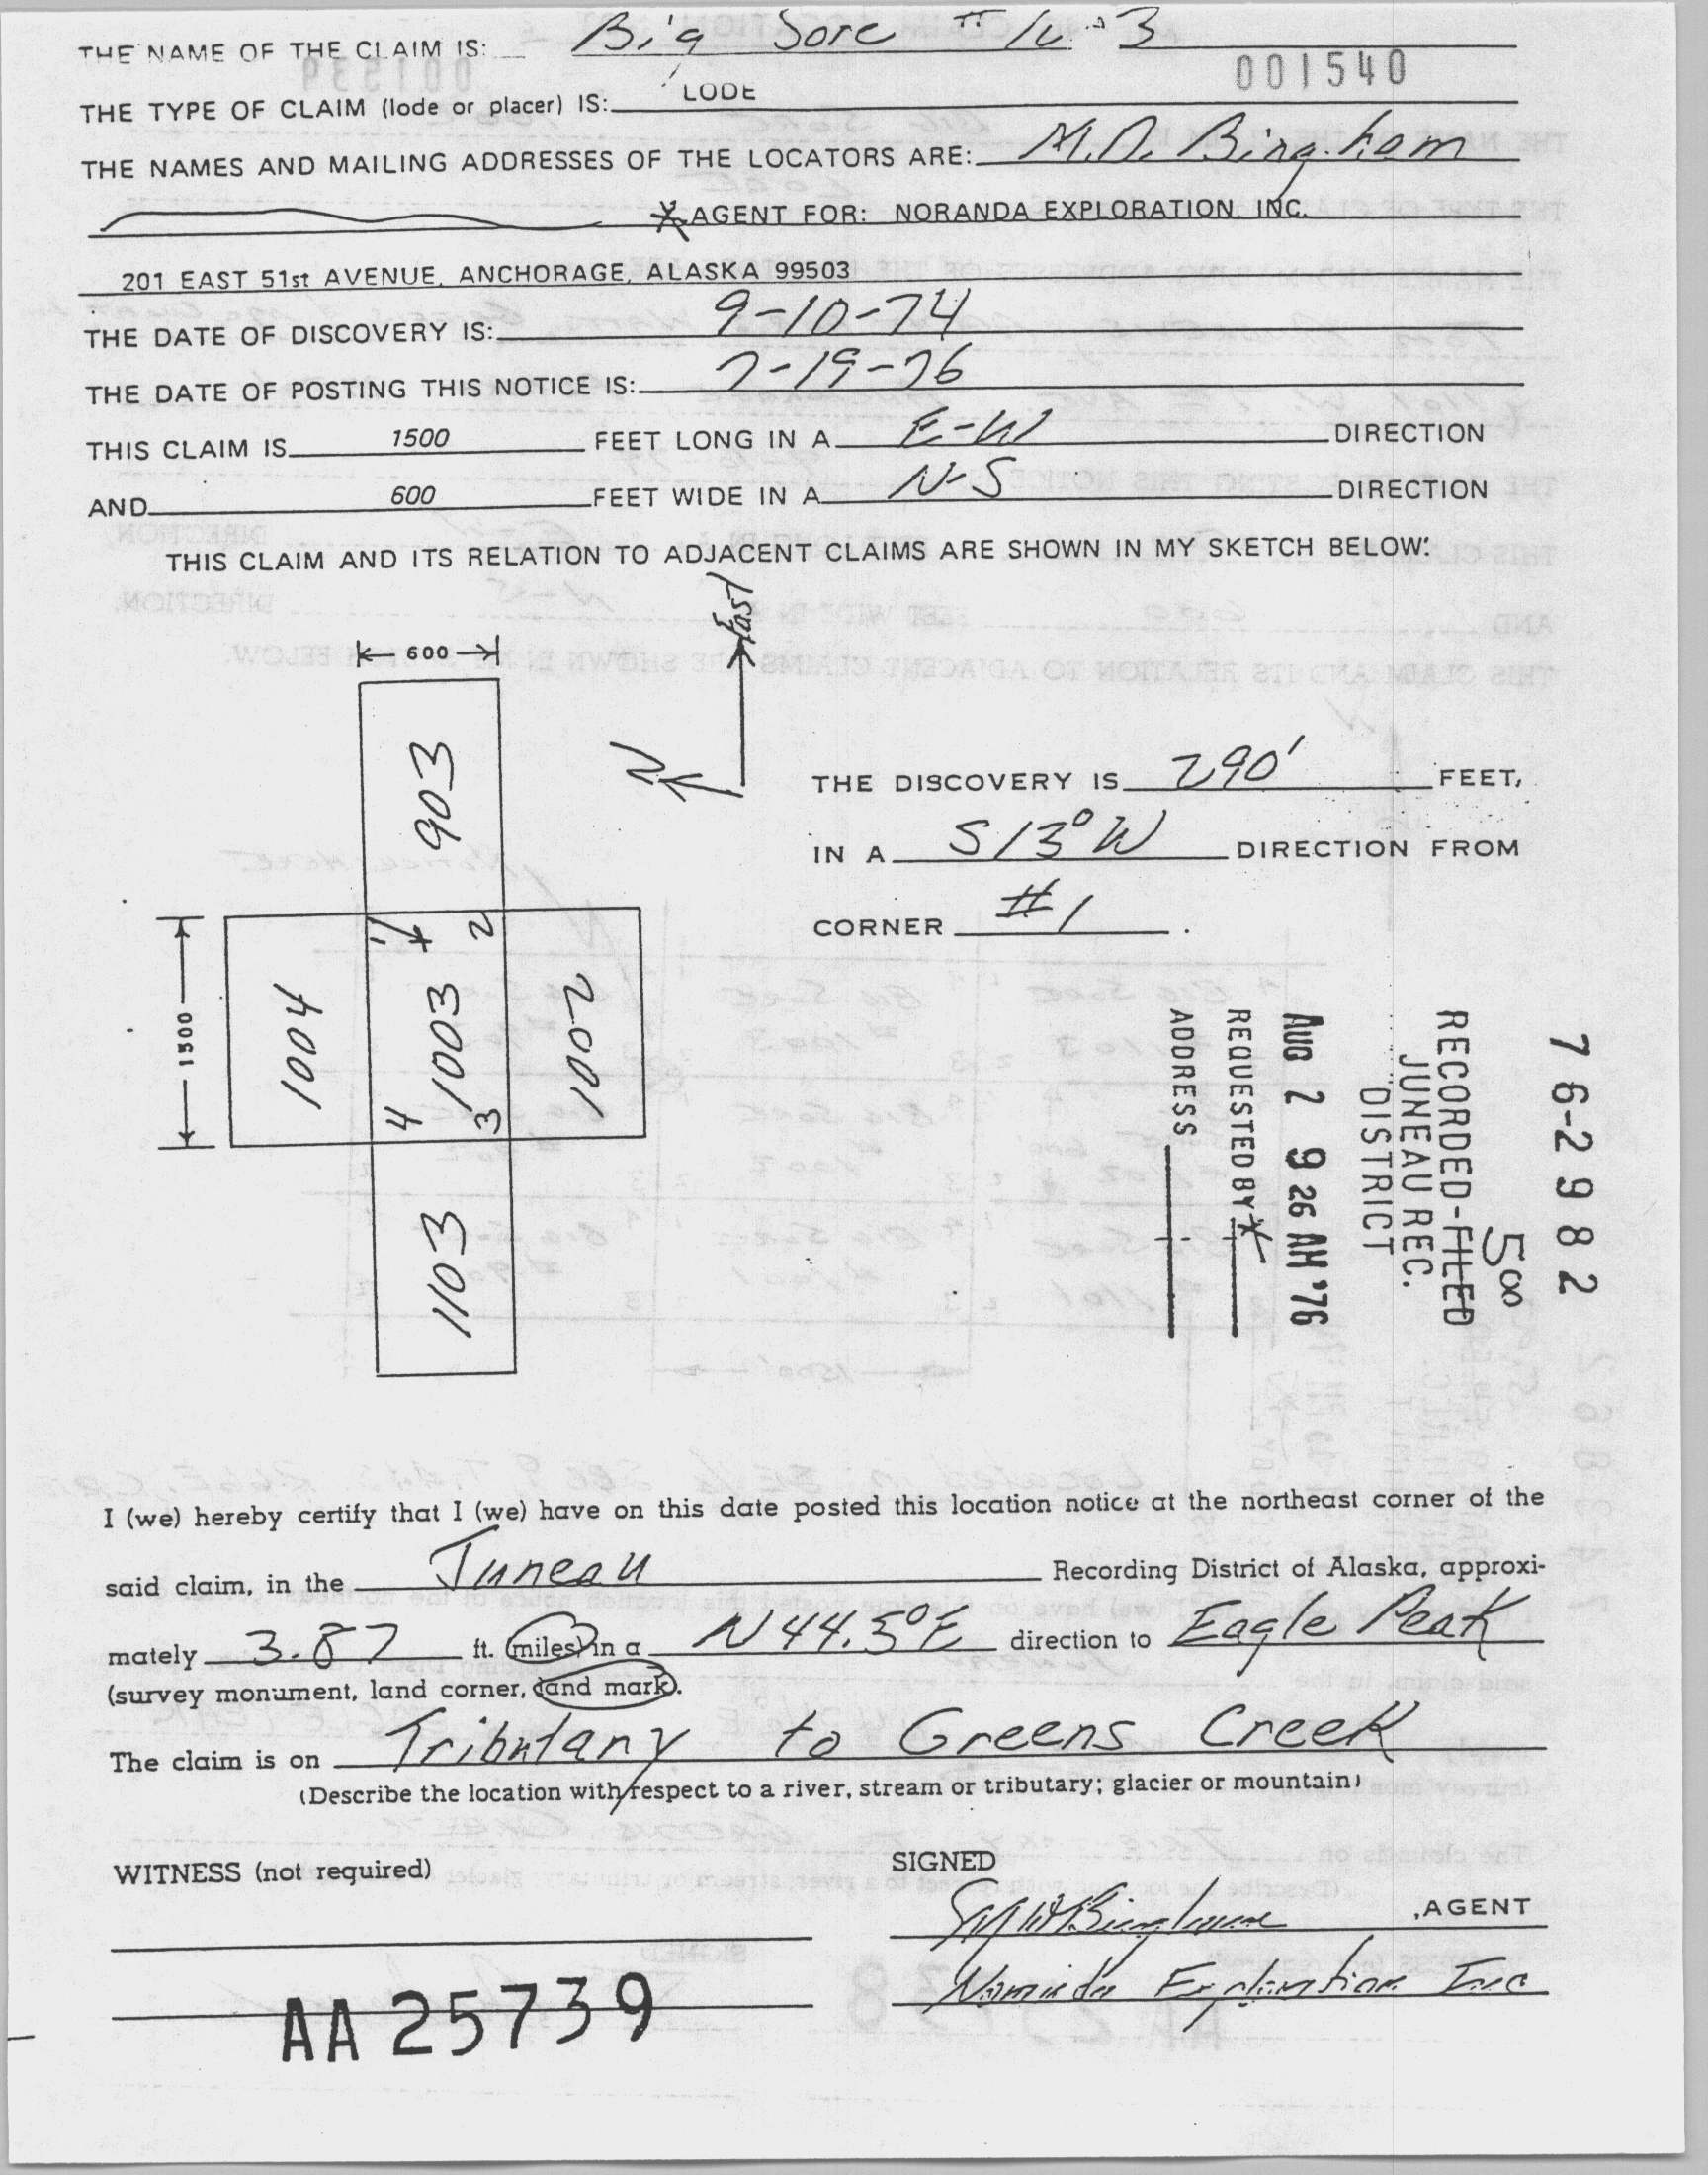 THE NAME OF THE CLAIM IS: Big Sore #
001540
THE TYPE OF CLAIM (lode or placer) IS: LODE
THE NAMES AND MAILING ADDRESSES OF THE LOCATORS ARE: M.D. Bingham
X AGENT FOR: NORANDA EXPLORATION INC.
201 EAST 51st AVENUE, ANCHORAGE, ALASKA 99503
THE DATE OF DISCOVERY IS: 9-10-74
THE DATE OF POSTING THIS NOTICE IS: 7-19-76
THIS CLAIM IS 1500 FEET LONG IN A E-W DIRECTION
AND 600 FEET WIDE IN A N-S DIRECTION
THIS CLAIM AND ITS RELATION TO ADJACENT CLAIMS ARE SHOWN IN MY SKETCH BELOW:
East
N
600
903
1500
1004
1 2
1003
4 3
1002
1103
THE DISCOVERY IS 290' FEET,
IN A S13°W DIRECTION FROM
CORNER #1.
76-2982
500
RECORDED-FILED
JUNEAU REC.
DISTRICT
AUG 2 9 26 AM '76
REQUESTED BY X
ADDRESS
I (we) hereby certify that I (we) have on this date posted this location notice at the northeast corner of the
said claim, in the Juneau Recording District of Alaska, approxi-
mately 3.87 ft. (miles) in a N44.5°E direction to Eagle Peak
(survey monument, land corner, land mark).
The claim is on Tributary to Greens Creek
(Describe the location with respect to a river, stream or tributary; glacier or mountain)
WITNESS (not required)
SIGNED
Bingham ,AGENT
Noranda Exploration Inc
AA 25739